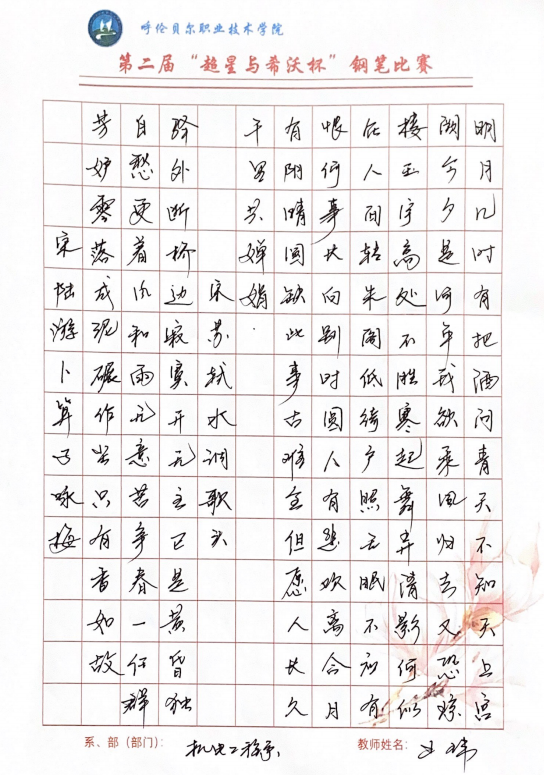 呼伦贝尔职业技术学院
第二届“超星与希沃杯”钢笔比赛
明月几时有把酒问青天不知天上宫
阙今夕是何年我欲乘风归去又恐琼
楼玉宇高处不胜寒起舞弄清影何似
在人间转朱阁低绮户照无眠不应有
恨何事长向别时圆人有悲欢离合月
有阴晴圆缺此事古难全但愿人长久
千里共婵娟.
宋苏轼水调歌头
驿外断桥边寂寞开无主已是黄昏独
自愁更着风和雨无意苦争春一任群
芳妒零落成泥碾作尘只有香如故
宋陆游卜算子咏梅
系、部（部门）：机电工程系 教师姓名：